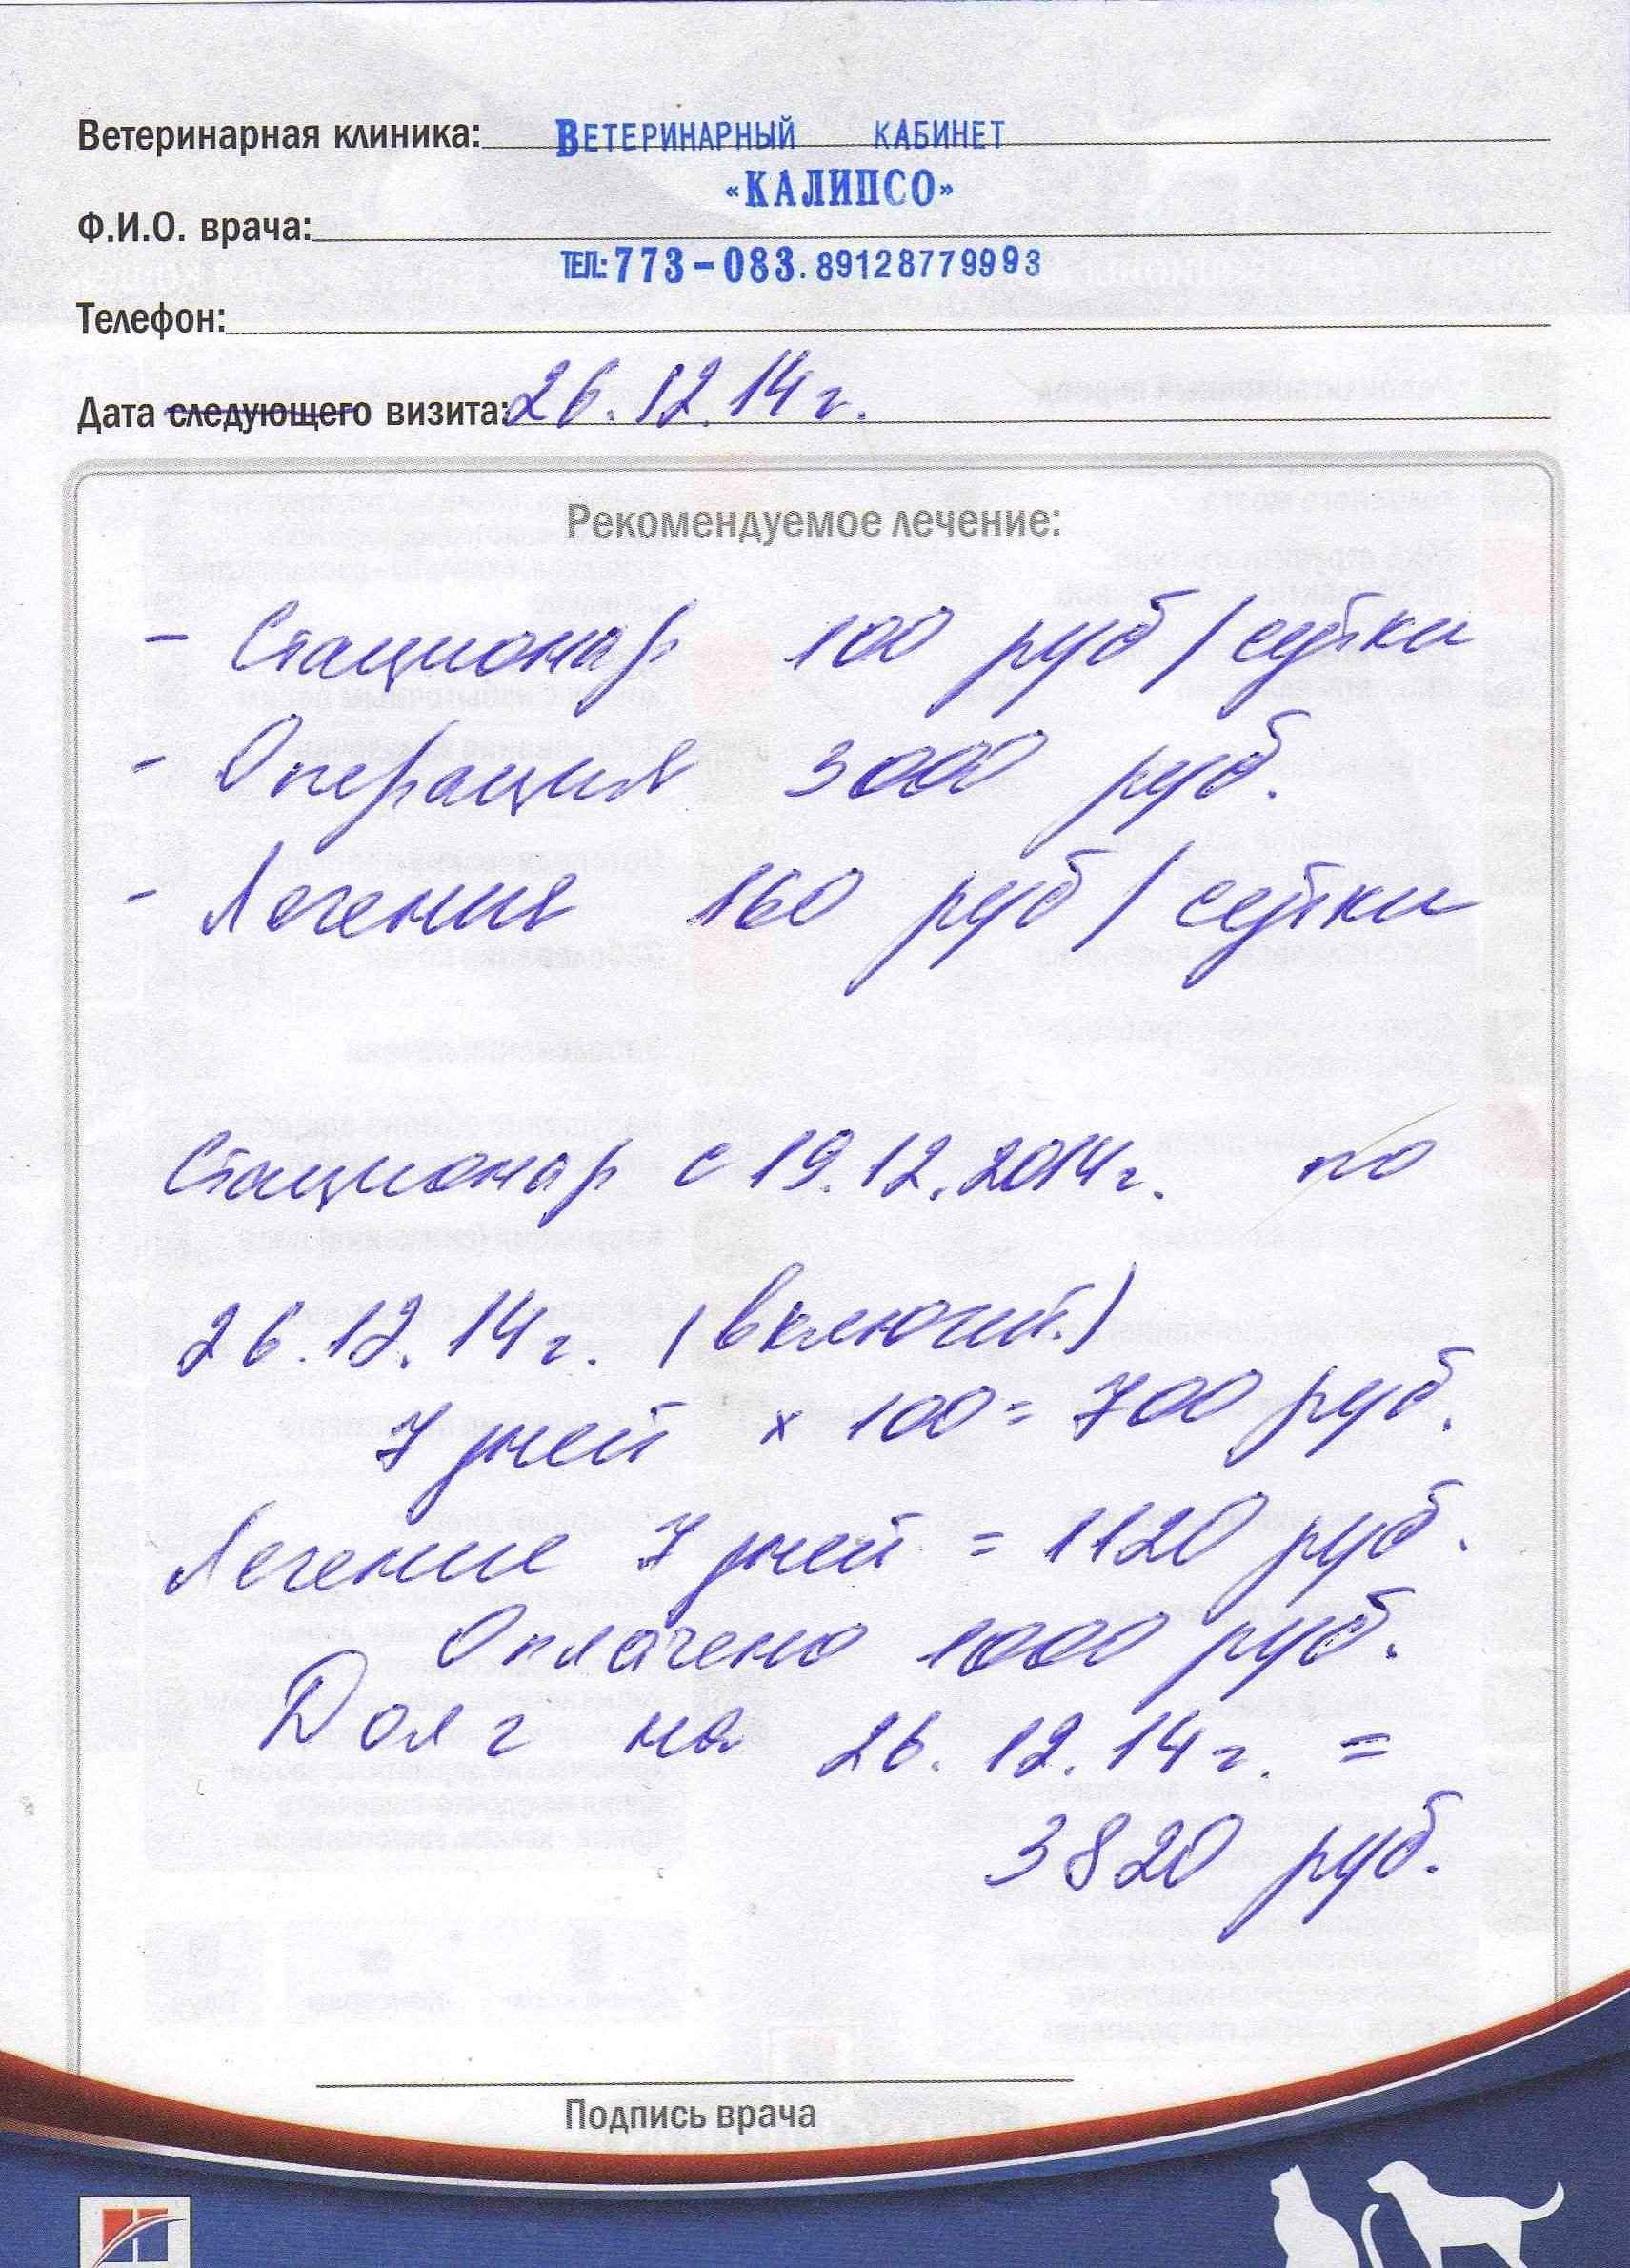 Ветеринарная клиника: ВЕТЕРИНАРНЫЙ КАБИНЕТ
«КАЛИПСО»
Ф.И.О. врача:
ТЕЛ.: 773-083. 89128779993
Телефон:
Дата следующего визита: 26.12.14г.
Рекомендуемое лечение:
- Стационар 100 руб/сутки
- Операция 3000 руб.
- Лечения 160 руб/сутки
Стационар с 19.12.2014г. по
26.12.14г. (включит.)
7 дней х 100 = 700 руб.
Лечение 7 дней = 1120 руб.
Оплачено 1000 руб.
Долг на 26.12.14г. =
3820 руб.
Подпись врача